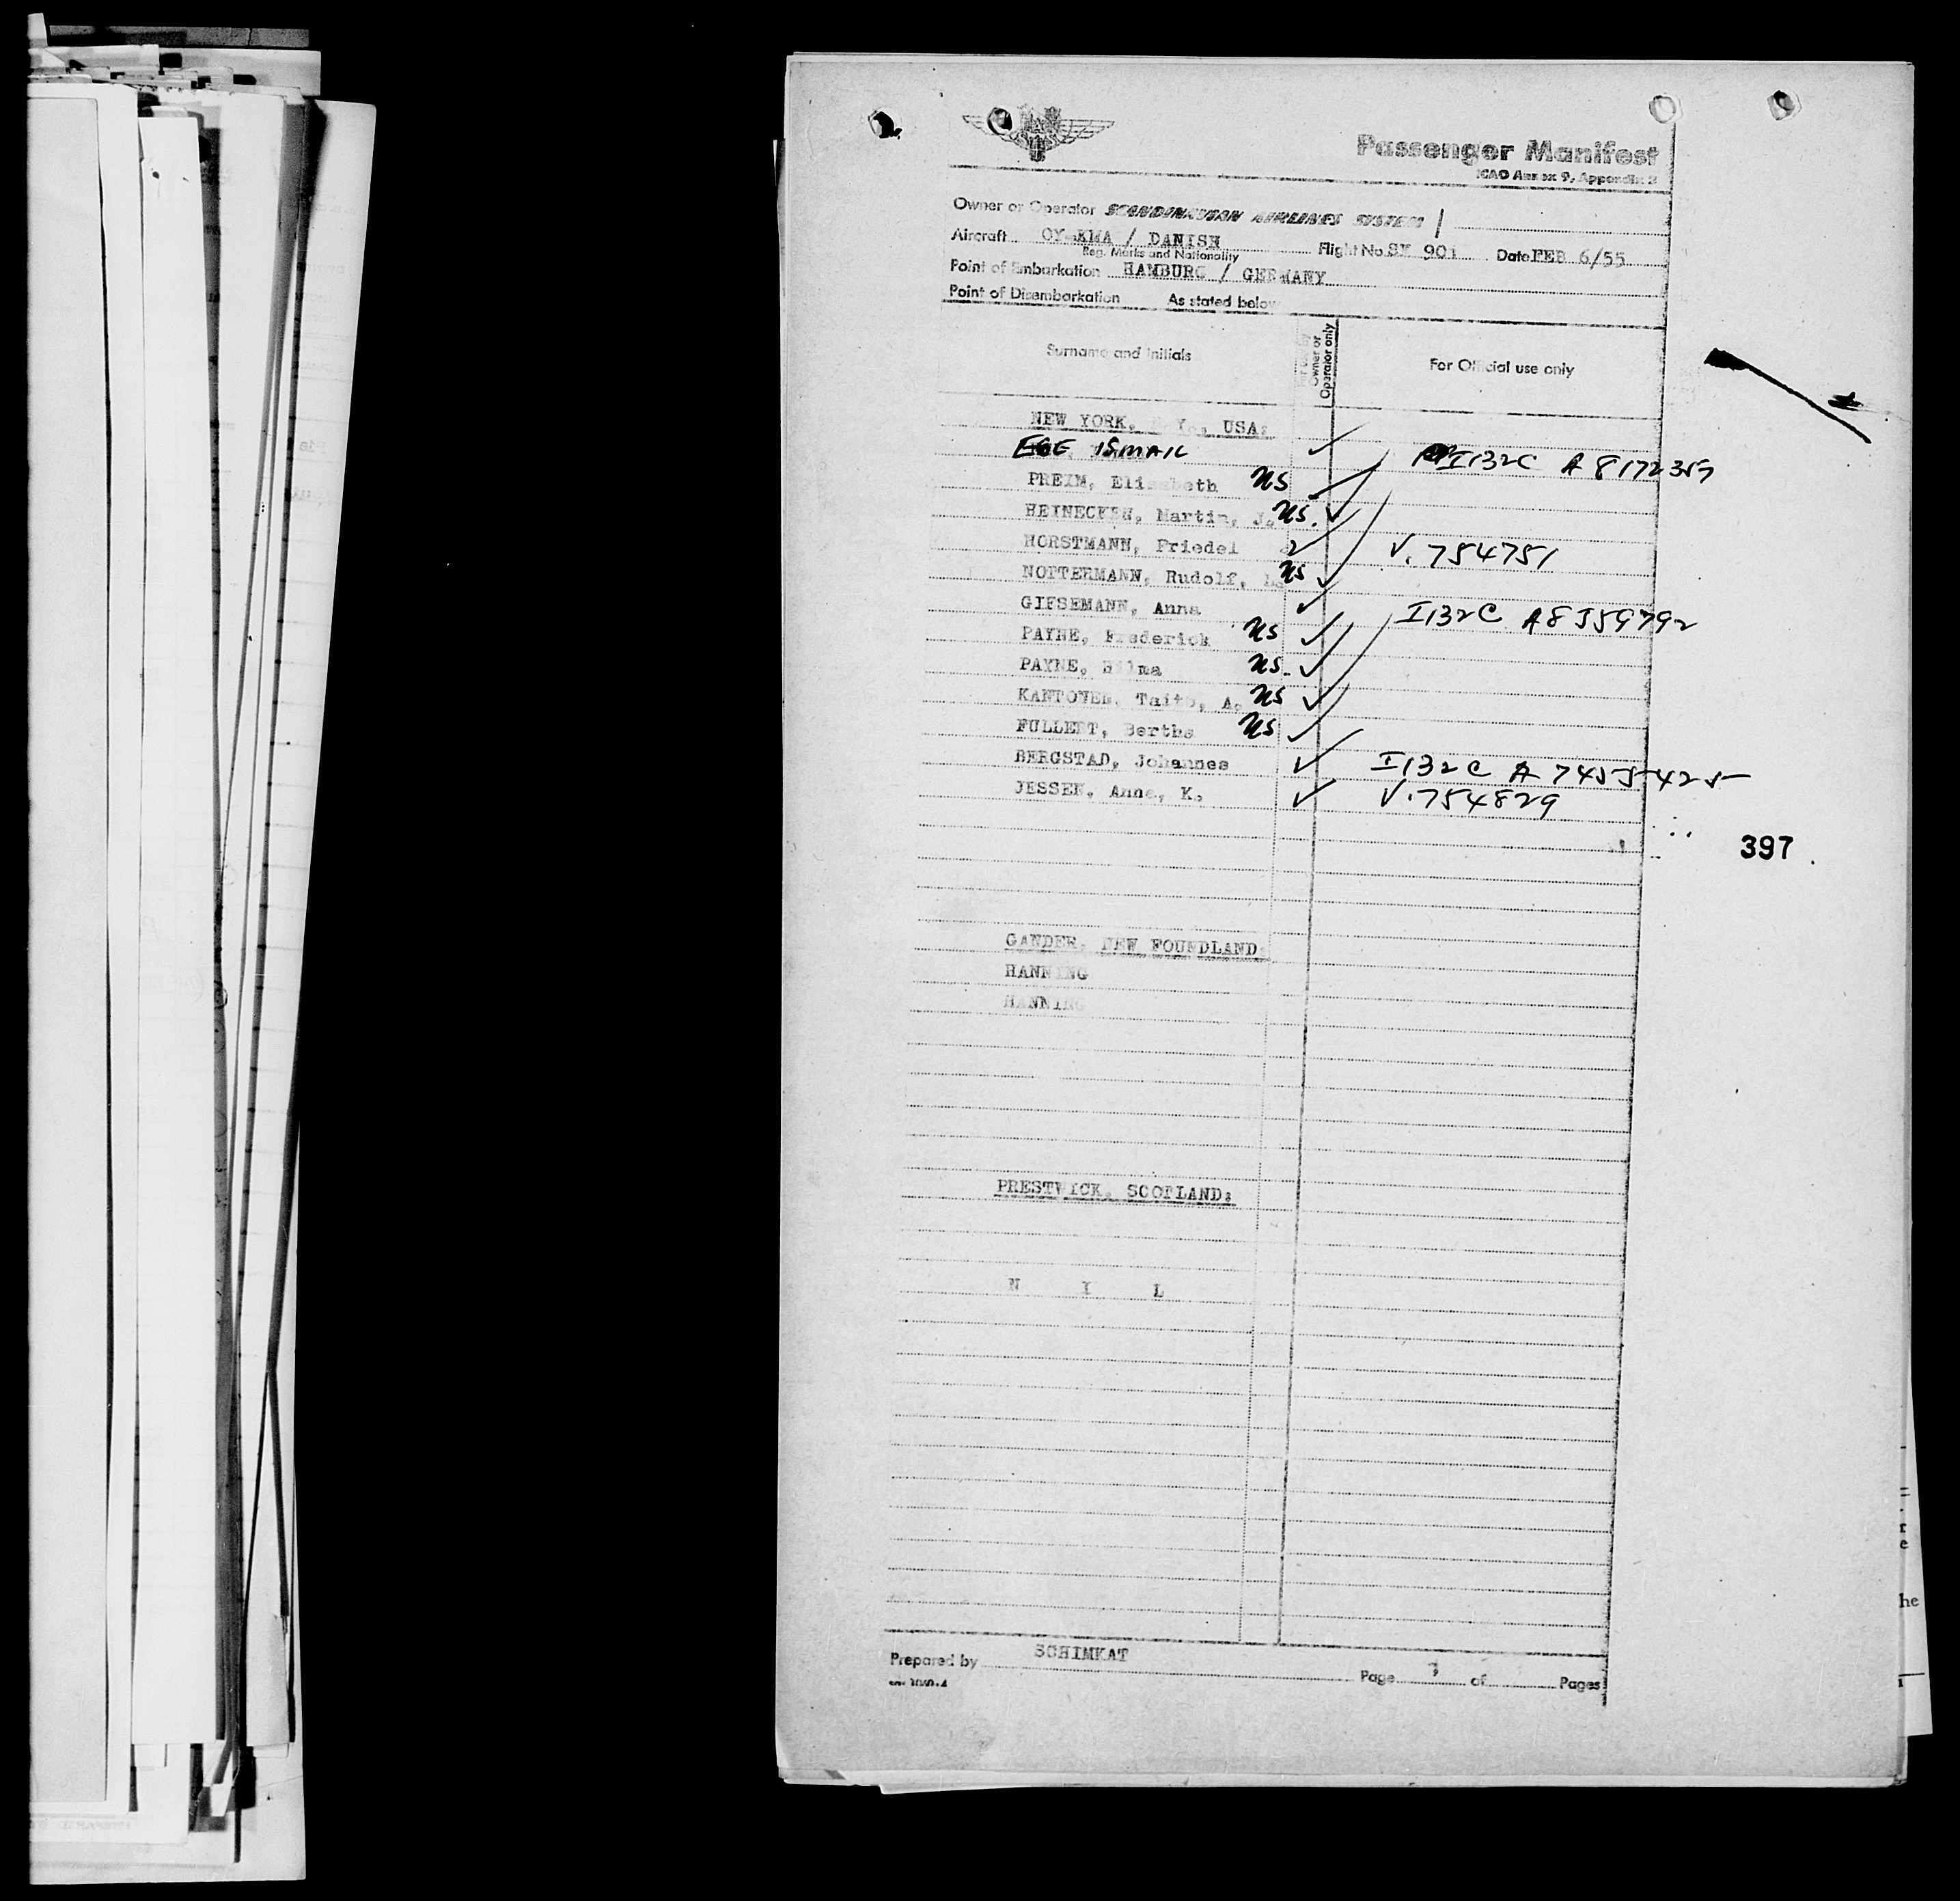 Passenger Manifest
ICAO Annex 9, Appendix 3
Owner or Operator SCANDINAVIAN AIRLINES SYSTEM
Aircraft OY-KMA / DANISH Flight No. SK 901 Date FEB 6/55
Reg. Marks and Nationality
Point of Embarkation HAMBURG / GERMANY
Point of Disembarkation As stated below
Surname and Initials Owner or Operator only For Official use only
NEW YORK, Y., USA:
EGE ISMAIL ✓ I132C A 8172357
PREIM, Elisabeth US ✓
HEINECKEN, Martin, J. US. ✓
HORSTMANN, Friedel ✓ V. 754751
NOTTERMANN, Rudolf, US ✓
GIESEMANN, Anna ✓ I132C A8559792
PAYNE, Frederick US ✓
PAYNE, Hilma US ✓
KANTONEN, Taito, A. US ✓
FULLERT, Bertha US ✓
BERGSTAD, Johannes ✓ I132C A 7455425
JESSEN, Anne, K. ✓ V.754829
397
GANDER, NEW FOUNDLAND:
HANNING
HANNING
PRESTWICK, SCOTLAND:
N I L
Prepared by SCHIMKAT Page of Pages
he